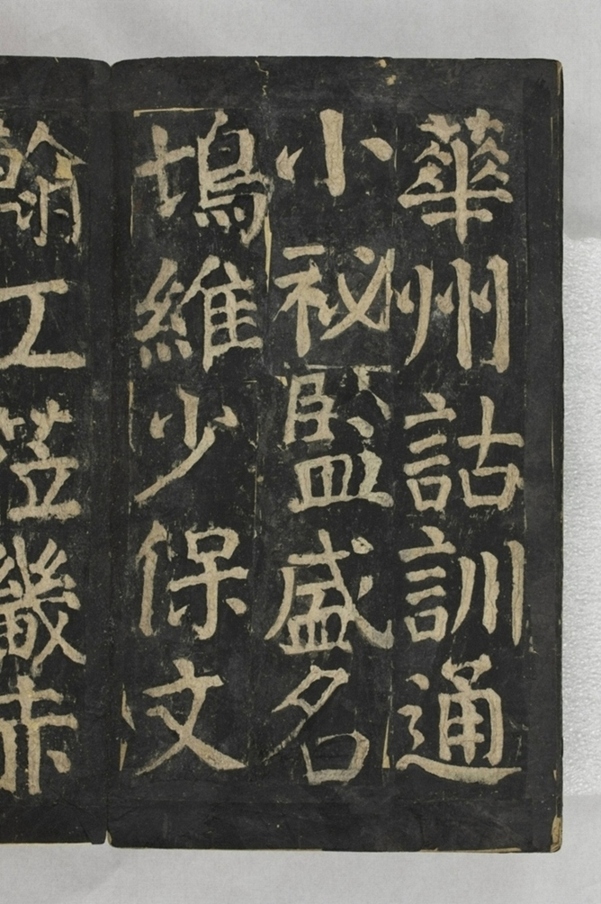 華州詁訓通
小秘監盛名
塢維少保文
翰工莅畿赤